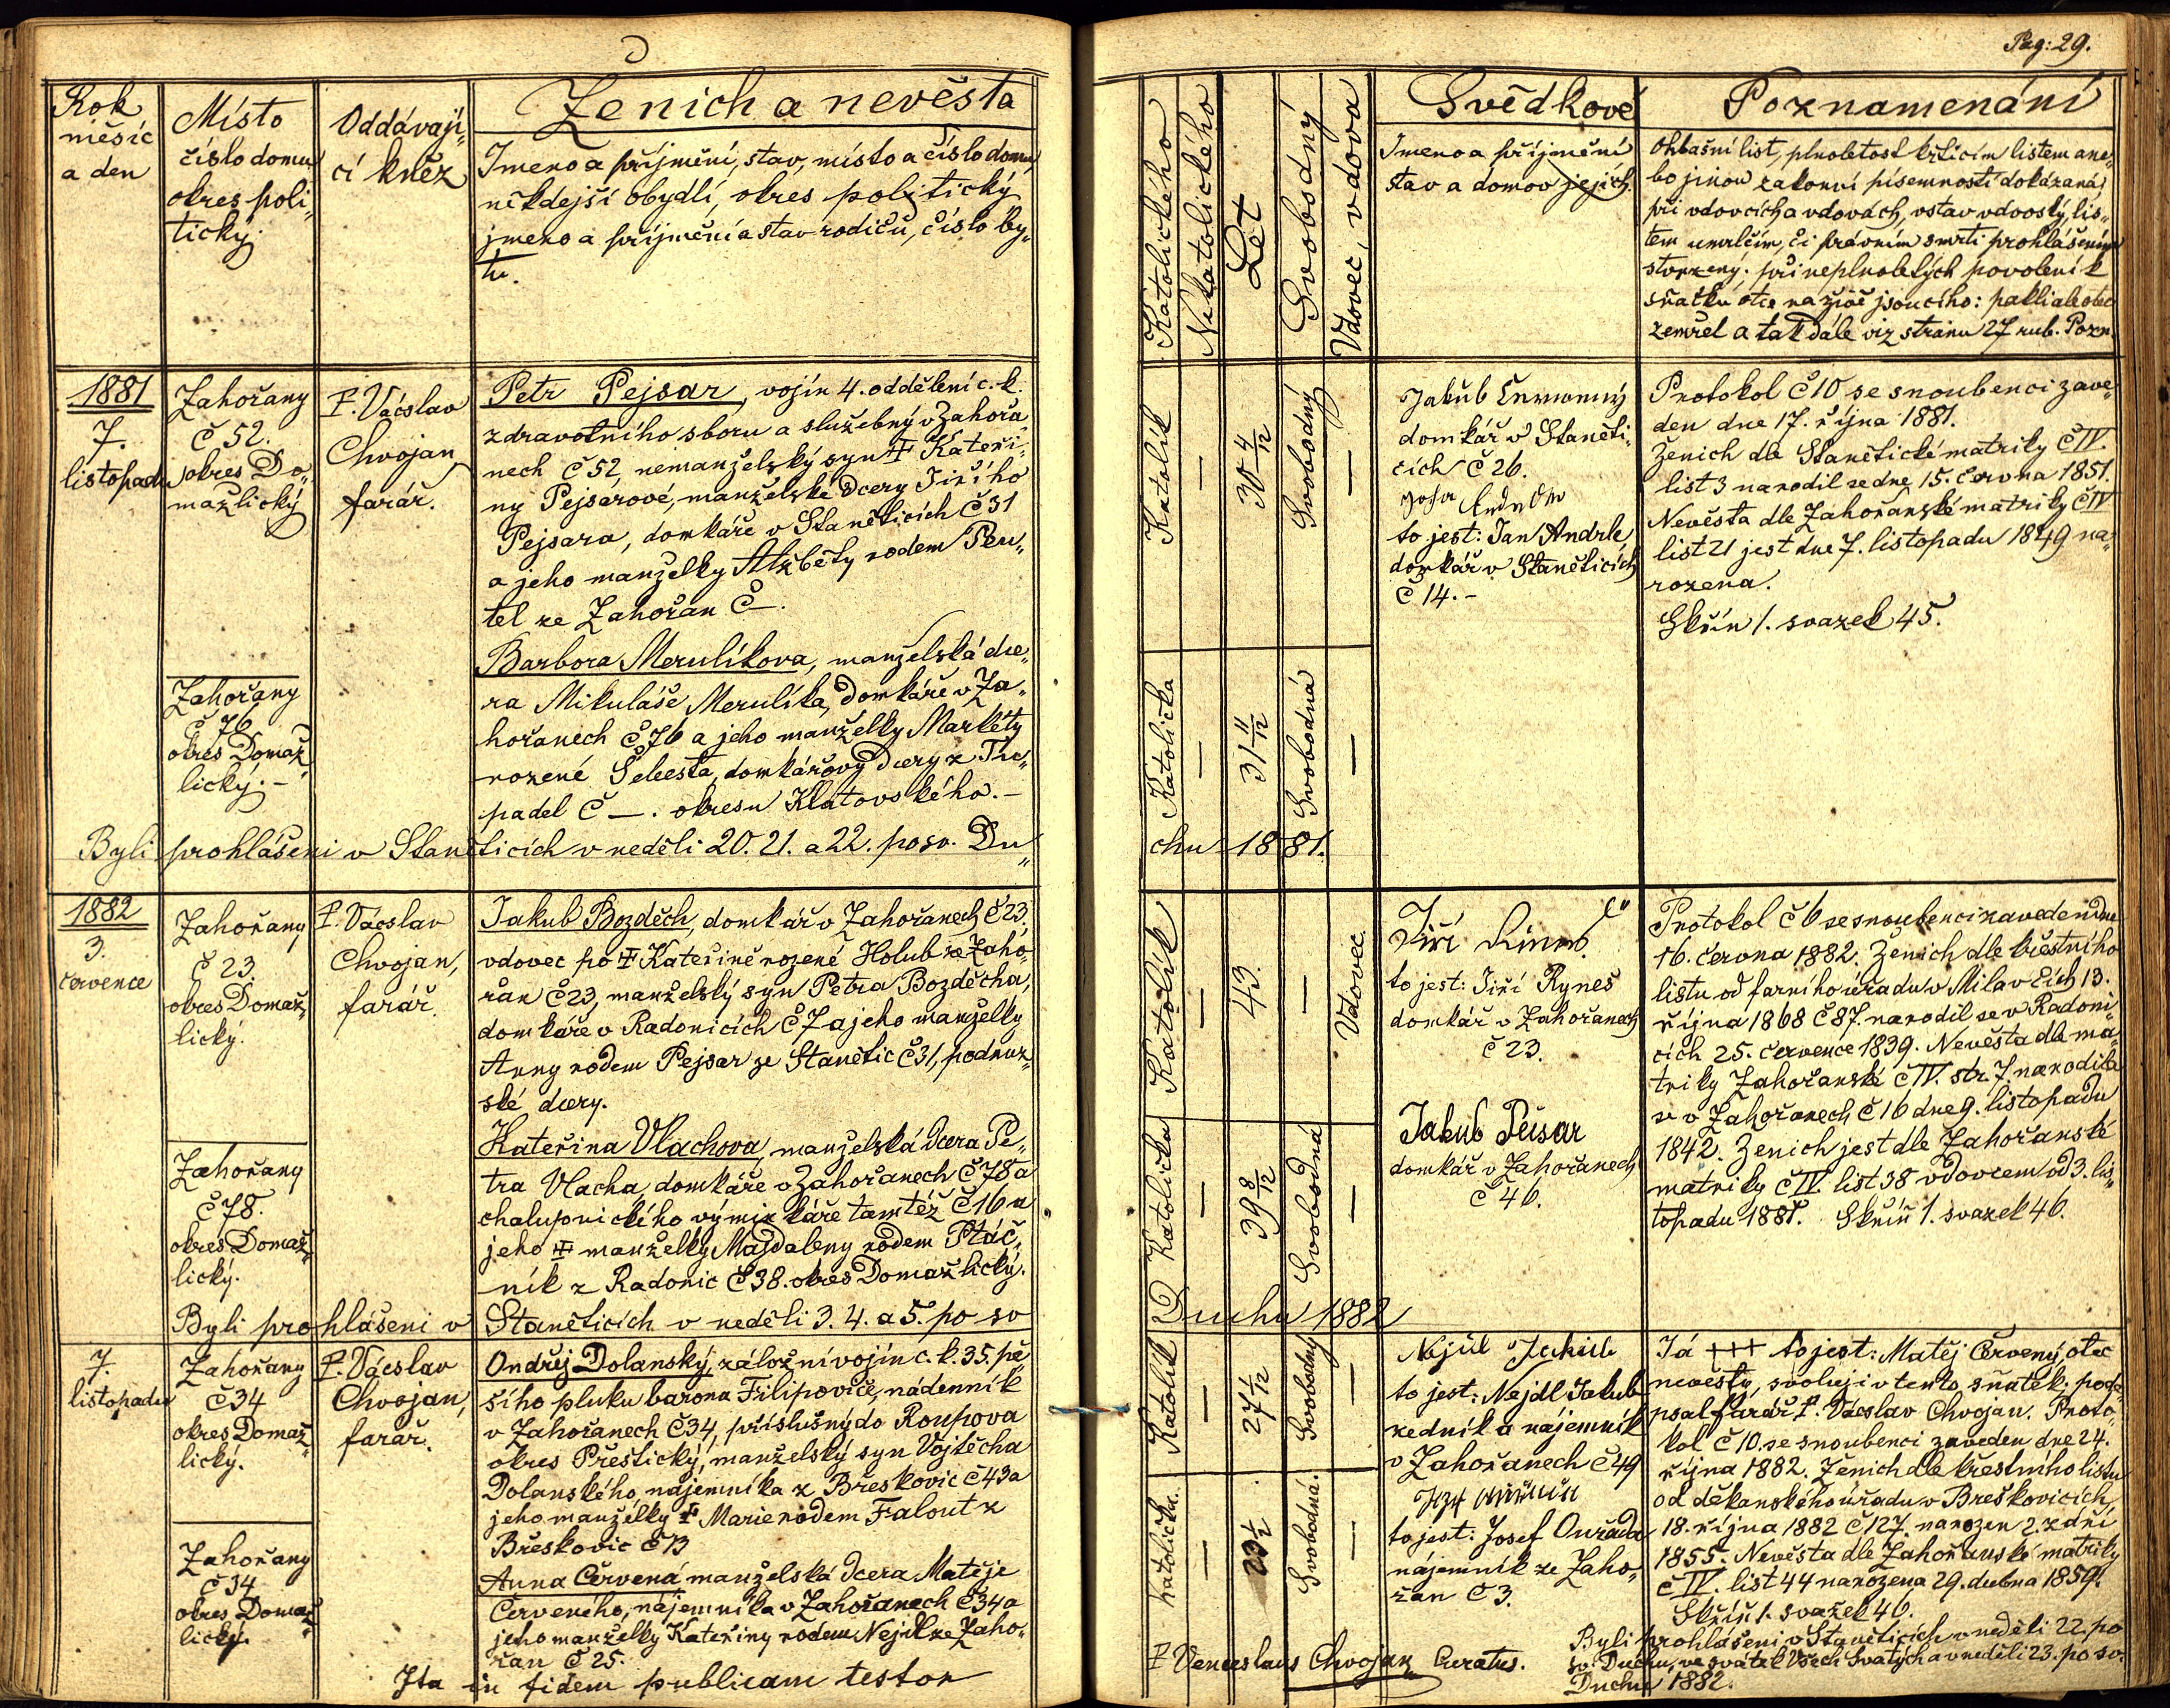 Pag: 29.
Rok
měsíc
a den
Místo
číslo domu
okres poli„
tický.
Oddávají„
cí kněz
Ženich a nevěsta
Jmeno a příjmění, stav, místo a číslo domu,
někdejší obydlí, okres politický
jmeno a příjmění a stav rodičů, číslo by„
tu.
Katolického
Nekatolického
Let
Svobodný
Vdovec, vdova
Svědkové
Jmeno a příjmění
stav a domov jejich.
Poznamenání
Ohlašní list, plnoletost křticím listem ane„
bo jinou zákonní písemností dokázaná;
při vdovcích a vdovách, vstav vdovský, lis„
tem umrlčím, či právním smrti prohlášením
stvrzený. při neplnoletých povolení k
sňatku otce na živě jsoucího: pakli ale otec
zemřel a tak dále viz stranu 27 rub. Pozn.
1881
7.
listopadu
Zahořany
č 52.
okres Do„
mažlický
P. Václav
Chvojan
farář.
Petr Pejsar, vojín 4. oddělení c. k.
zdravotního sboru a služebný v Zahořa„
nech č 52, nemanželský syn ‡ Kateři„
ny Pejsarové, manželské dcery Jiřího
Pejsara, domkáře v Staněticích č 31
a jeho manželky Alžběty rodem Peu„
tel ze Zahořan č —.
Katolík
—
30 4/12
Svobodný
—
Jakub Červenný
domkář v Staněti„
cích č 26.
to jest: Jan Andrle
domkář v Staněticích
č 14. –
Protokol č 10 se snoubenci zave„
den dne 17. října 1881.
Ženich dle Stanětické matriky č IV.
list 3 narodil se dne 15. června 1851.
Nevěsta dle Zahořanské matriky č IV
list 21 jest dne 7. listopadu 1849 na„
rozena.
Skřín 1. svazek 45.
Zahořany
č 76
okres Domaž„
lický. –
Barbora Merulíkova, manželská dce„
ra Mikuláše Merulíka, domkáře v Za„
hořanech č 76 a jeho manželky Markéty
rozené Šelesta, domkářovy dcery z Tu„
padel č —. okresu Klatovského. –
Katolička
—
31 11/12
Svobodná
—
Byli prohlášeni v Staněticích v neděli 20. 21. a 22. po sv. Du„
chu 1881.
1882
3.
července
Zahořany
č 23.
okres Domaž„
lický.
P. Václav
Chvojan,
farář.
Jakub Bozděch, domkář v Zahořanech č 23,
vdovec po ‡ Kateřině rozené Holub ze Zaho„
řan č 23, manželský syn Petra Bozděcha,
domkáře v Radonicích č 7 a jeho manželky
Anny rodem Pejsar ze Stanětic č 31, podruž„
ské dcery.
Katolík
—
43.
—
Vdovec.
to jest: Jiří Ryneš
domkář v Zahořanech
č 23.
Protokol č 6 se snoubenci zaveden dne
16. června 1882. Ženich dle křestního
listu od farního úřadu v Milavčích 13.
října 1868 č 87. narodil se v Radoni„
cích 25. července 1839. Nevěsta dle ma„
triky Zahořanské č IV. str. 7. narodila
se v Zahořanech č 16 dne 9. listopadu
1842. Ženich jest dle Zahořanské
matriky č IV. list 38 vdovcem od 3. lis„
topadu 1881. Skříň 1. svazek 46.
Zahořany
č 78.
okres Domaž„
lický.
Kateřina Vlachova, manželská dcera Pe„
tra Vlacha, domkáře v Zahořanech č 78 a
chalupnického výminkáře tamtéž č 16 a
jeho ‡ manželky Majdaleny rodem Ptáč„
ník z Radonic č 38. okres Domažlický.
Katolička
—
39 8/12
Svobodná
—
Jakub Peisar
domkář v Zahořanech
č 46.
Byli prohlášeni v Staněticích v neděli 3. 4. a 5. po sv
Duchu 1882
7.
listopadu
Zahořany
č 34
okres Domaž„
lický.
P. Václav
Chvojan,
farář.
Ondřej Dolanský, záložní vojín c. k. 35. pě„
šího pluku barona Filipoviče, nádenník
v Zahořanech č 34, příslušný do Roupova
okres Přeštický, manželský syn Vojtěcha
Dolanského, nájemníka z Břeskovic č 43 a
jeho manželky ‡ Marie rodem Falout z
Břeskovic č 13
Katolík
—
27 1/12
Svobodný
—
Nejdl Jakub
to jest: Nejdl Jakub
zedník a nájemník
v Zahořanech č 49
to jest: Josef Ouřada
nájemník ze Zaho„
řan č 3.
Já +++ to jest: Matěj Červený, otec
nevěsty, svoluji v tento sňatek; pode„
psal farář P. Václav Chvojan. Proto„
kol č 10. se snoubenci zaveden dne 24.
října 1882. Ženich dle křestního listu
od děkanského úřadu v Břeskovicích,
18. října 1882 č 127. narozen 2. září
1855. Nevěsta dle Zahořanské matriky
č IV. list 44 narozena 29. dubna 1859.
Skříň 1. svazek 46.
Zahořany
č 34
okres Domaž„
lický.
Anna Červená manželská dcera Matěje
Červeného, nájemníka v Zahořanech č 34 a
jeho manželky Kateřiny rodem Nejdl ze Zaho„
řan č 25.
Katolička.
—
23 1/2
Svobodná.
—
Byli prohlášeni v Staněticích v neděli 22. po
sv. Duchu, ve svátek Všech Svatých a v neděli 23. po sv.
Duchu 1882.
Ita in fidem publicam testor
P Venceslaus Chvojan Curatus.